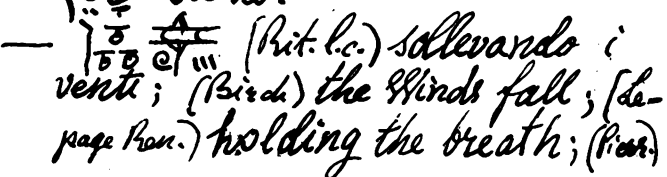 — (Rit. l.c.) sollevando i
venti; (Birch) the Winds fall; (Le-
page Ren.) holding the breath; (Pierr.)